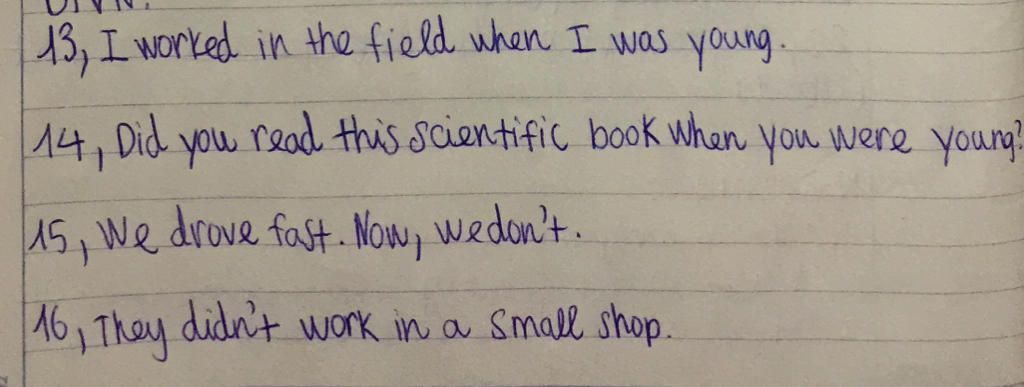 13, I worked in the field when I was young.
14, Did you read this scientific book when you were young?
15, We drove fast. Now, we don't.
16, They didn't work in a small shop.